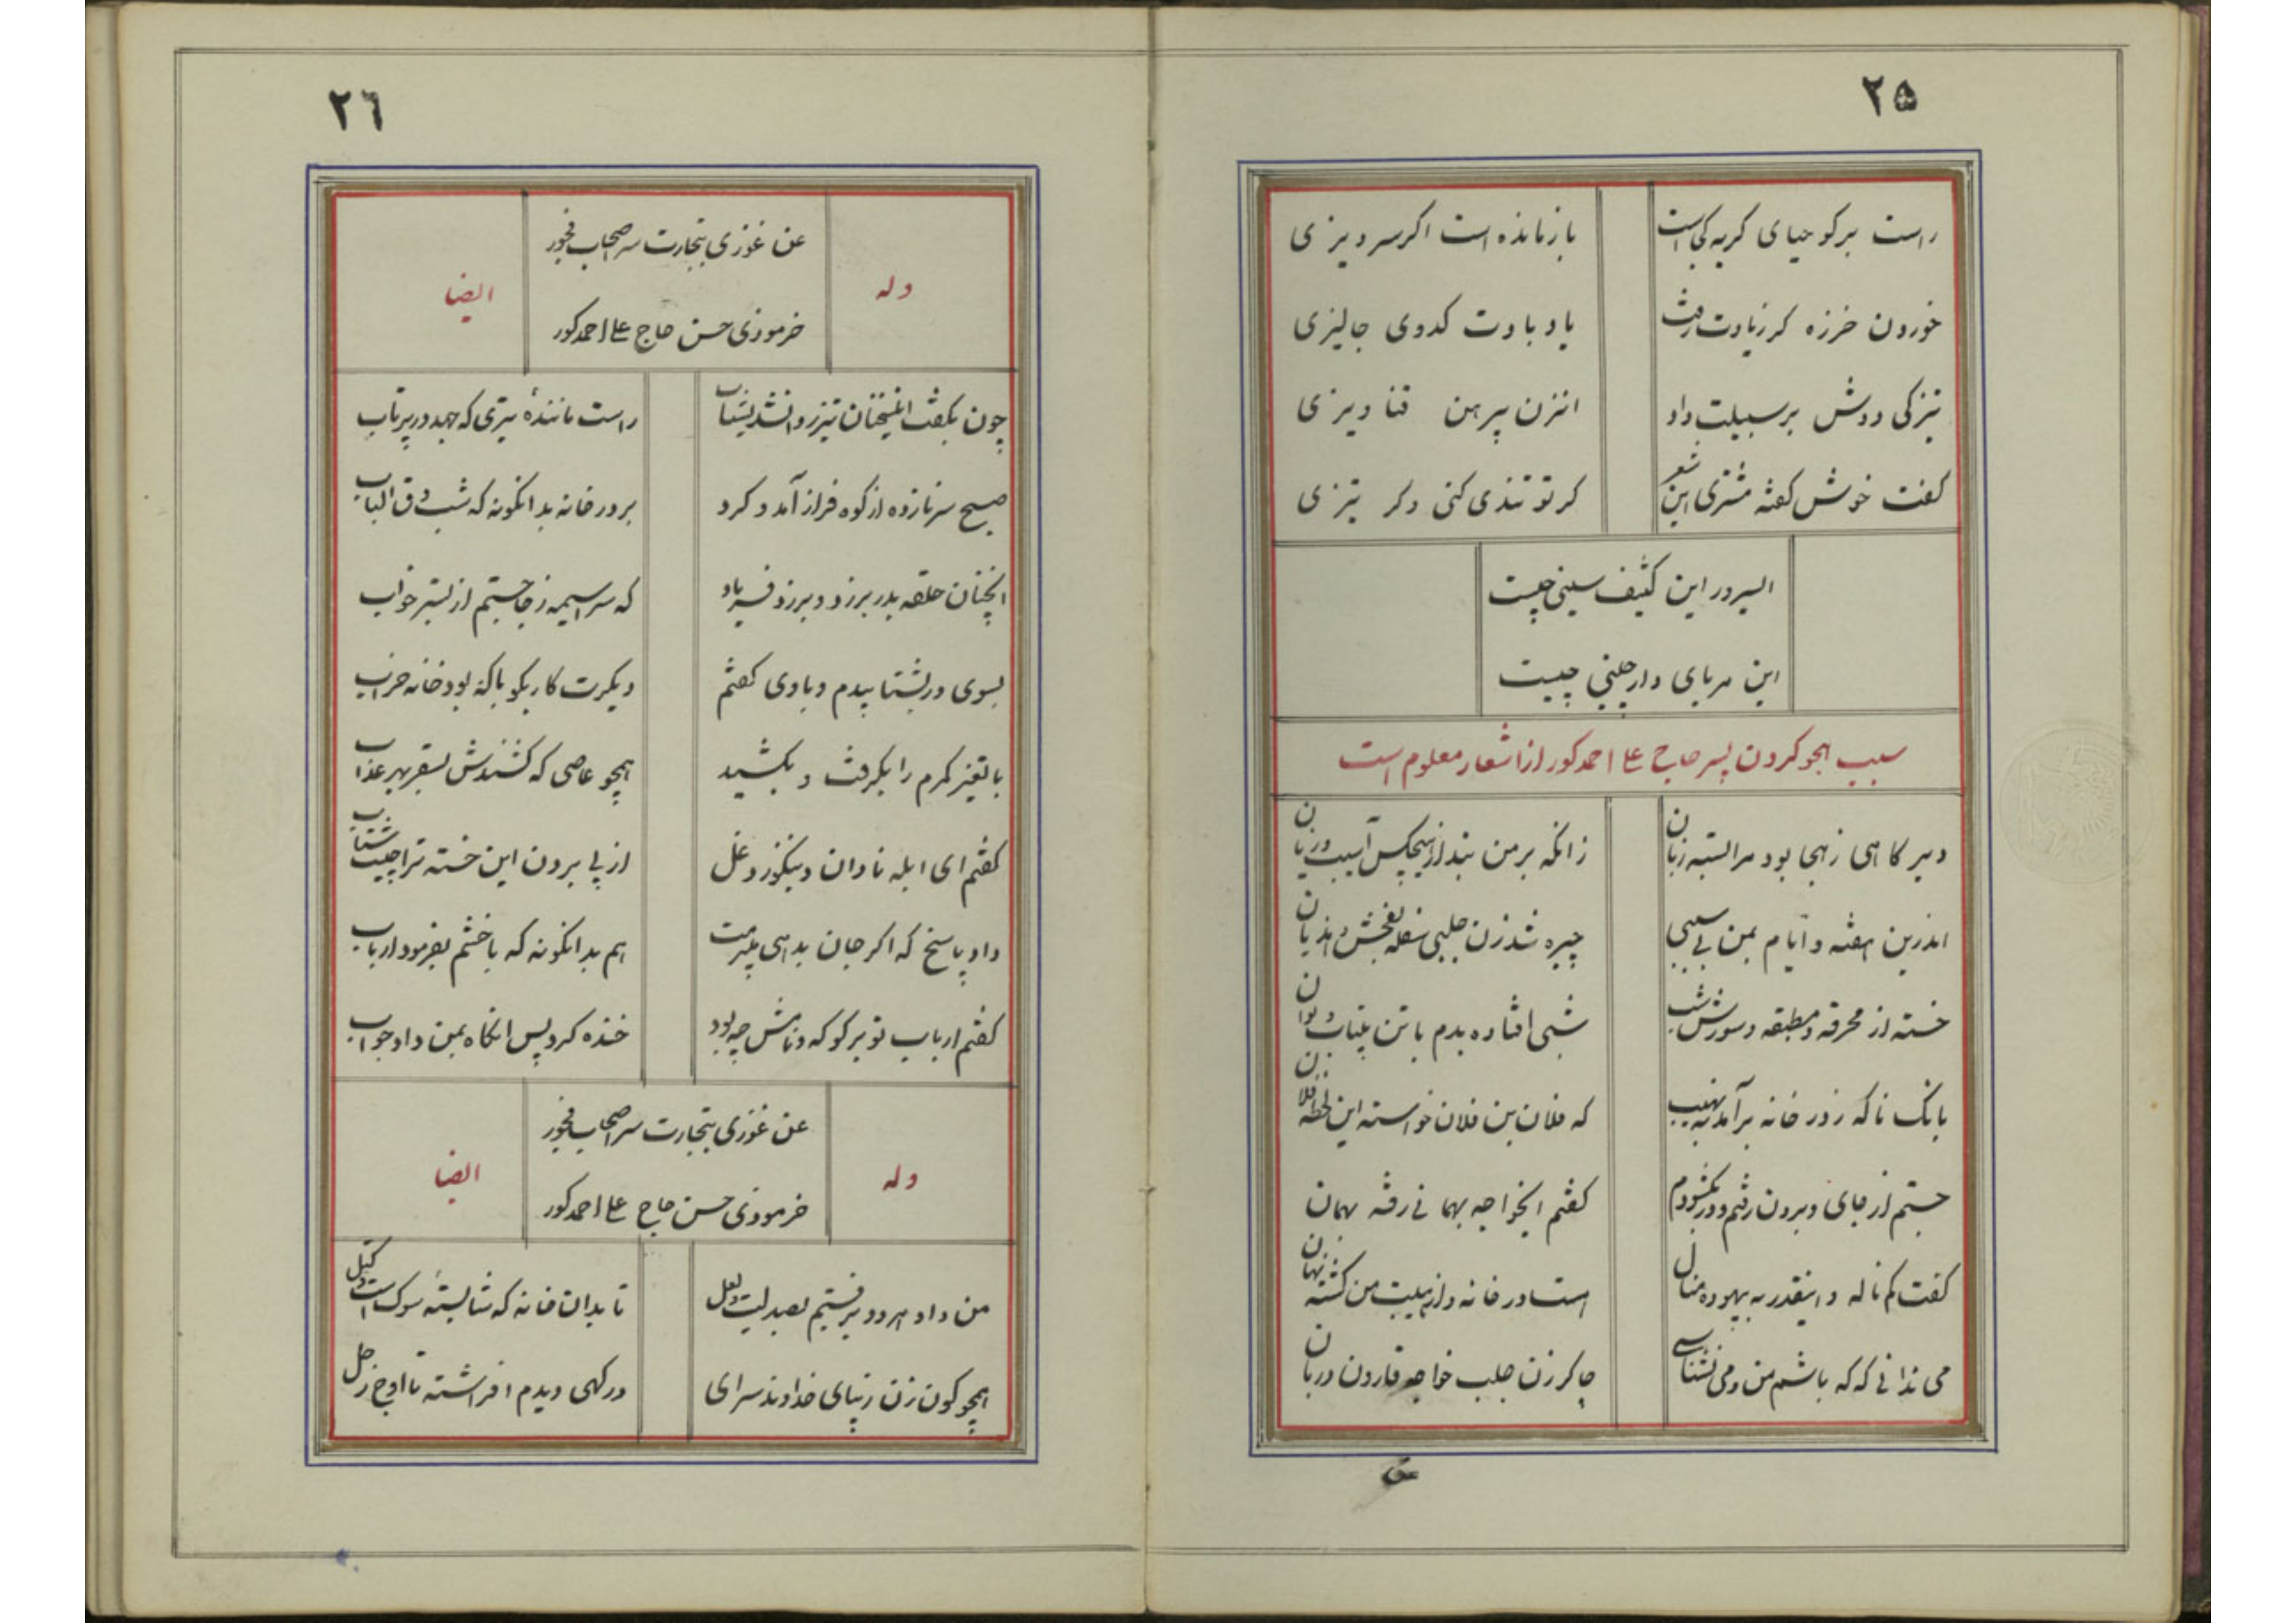 ۲۵
راست برکو حیای کربه کی است
بازمانده است اکر سر ویزی
خوردن خرزه کر زیادت رفت
یاد بادت کدوی جالیزی
تیزکی دوش بر سبیلت داد
انزن پیرهن قنا ویزی
کفت خوش کفته مشتری این شعر
کر تو تندی کنی و کر تیزی
السیر در این کثیف سینی چیست
این مربای دارچینی چیست
سبب هجو کردن پسر حاج علی احمد کور از اشعار معلوم است
دیر کاهی ز هجا بود مرا بسته زبان
زانکه بر من نبد از هیچکس آسیب و زیان
اندرین هفته و ایام بمن بی سببی
چیره شد زن جلبی سفله بفحش و هذیان
خسته از محرقه و مطبقه و سوزش تب
شبی افتاده بدم با تن بیتاب و توان
بانک ناکه ز در خانه برآمد بنهیب
که فلان بن فلان خواسته این لحظه فلان
جستم از جای و برون رفتم و در بکشودم
کفتم ایخواجه بهما نی رفته بهمان
کفت کم ناله و اینقدر به بیهوده منال
است در خانه و از هیبت من کشته نهان
می ندانی که که باشم من و می نشناسی
چاکر زن جلب خواجه قارون دربان
۲٦
وله
عن غوزی بتجارت سر اصحاب فجور
خرموذی حسن حاج علی احمد کور
ایضا
چون بکفت اینسخنان تیز روانشد بشتاب
راست مانندهٔ تیری که جهد در پرتاب
صبح سر نازده از کوه فراز آمد و کرد
بر در خانه بدانکونه که شب دق الباب
انچنان حلقه بدر بر زد و بر زد فریاد
که سراسیمه ز جا جستم از بستر خواب
بسوی در بشتابیدم و با وی کفتم
دیکرت کار بکو با که بود خانه خراب
با تغیر کمرم را بکرفت و بکشید
همچو عاصی که کشندش بسقر بهر عذاب
کفتم ای ابله نادان و بیکنوز دغل
از پی بردن این خسته ترا چیست شتاب
داد پاسخ که اکر جان بدهی میبرمت
هم بدانکونه که با خشم بفرمود ارباب
کفتم ارباب تو برکو که و نامش چه بود
خنده کرد و پس انکاه بمن داد جواب
وله
عن غوزی بتجارت سر اصحاب فجور
خرموذی حسن حاج علی احمد کور
ایضا
من و او هر دو برفتیم بصد لیت و لعل
تا بدان خانه که شایستهٔ سوک است و کتل
همچو کون زن زیبای خداوند سرای
درکهی دیدم افراشته تا اوج زحل